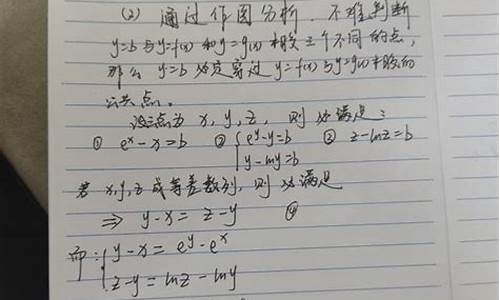 (2) 通过作图分析，不难判断
y=b 与 y=f(x) 和 y=g(x) 相交三个不同的点，
那么 y=b 必定穿过 y=f(x) 与 y=g(x) 相交的
公共点。
设三点为 x, y, z, 则必满足：
① eˣ-x=b ② { eʸ-y=b ③ z-lnz=b
y-lny=b
若 x,y,z 成等差数列，则必满足
⇒ y-x = z-y ④
而: { y-x = eʸ-eˣ
z-y = lnz-lny